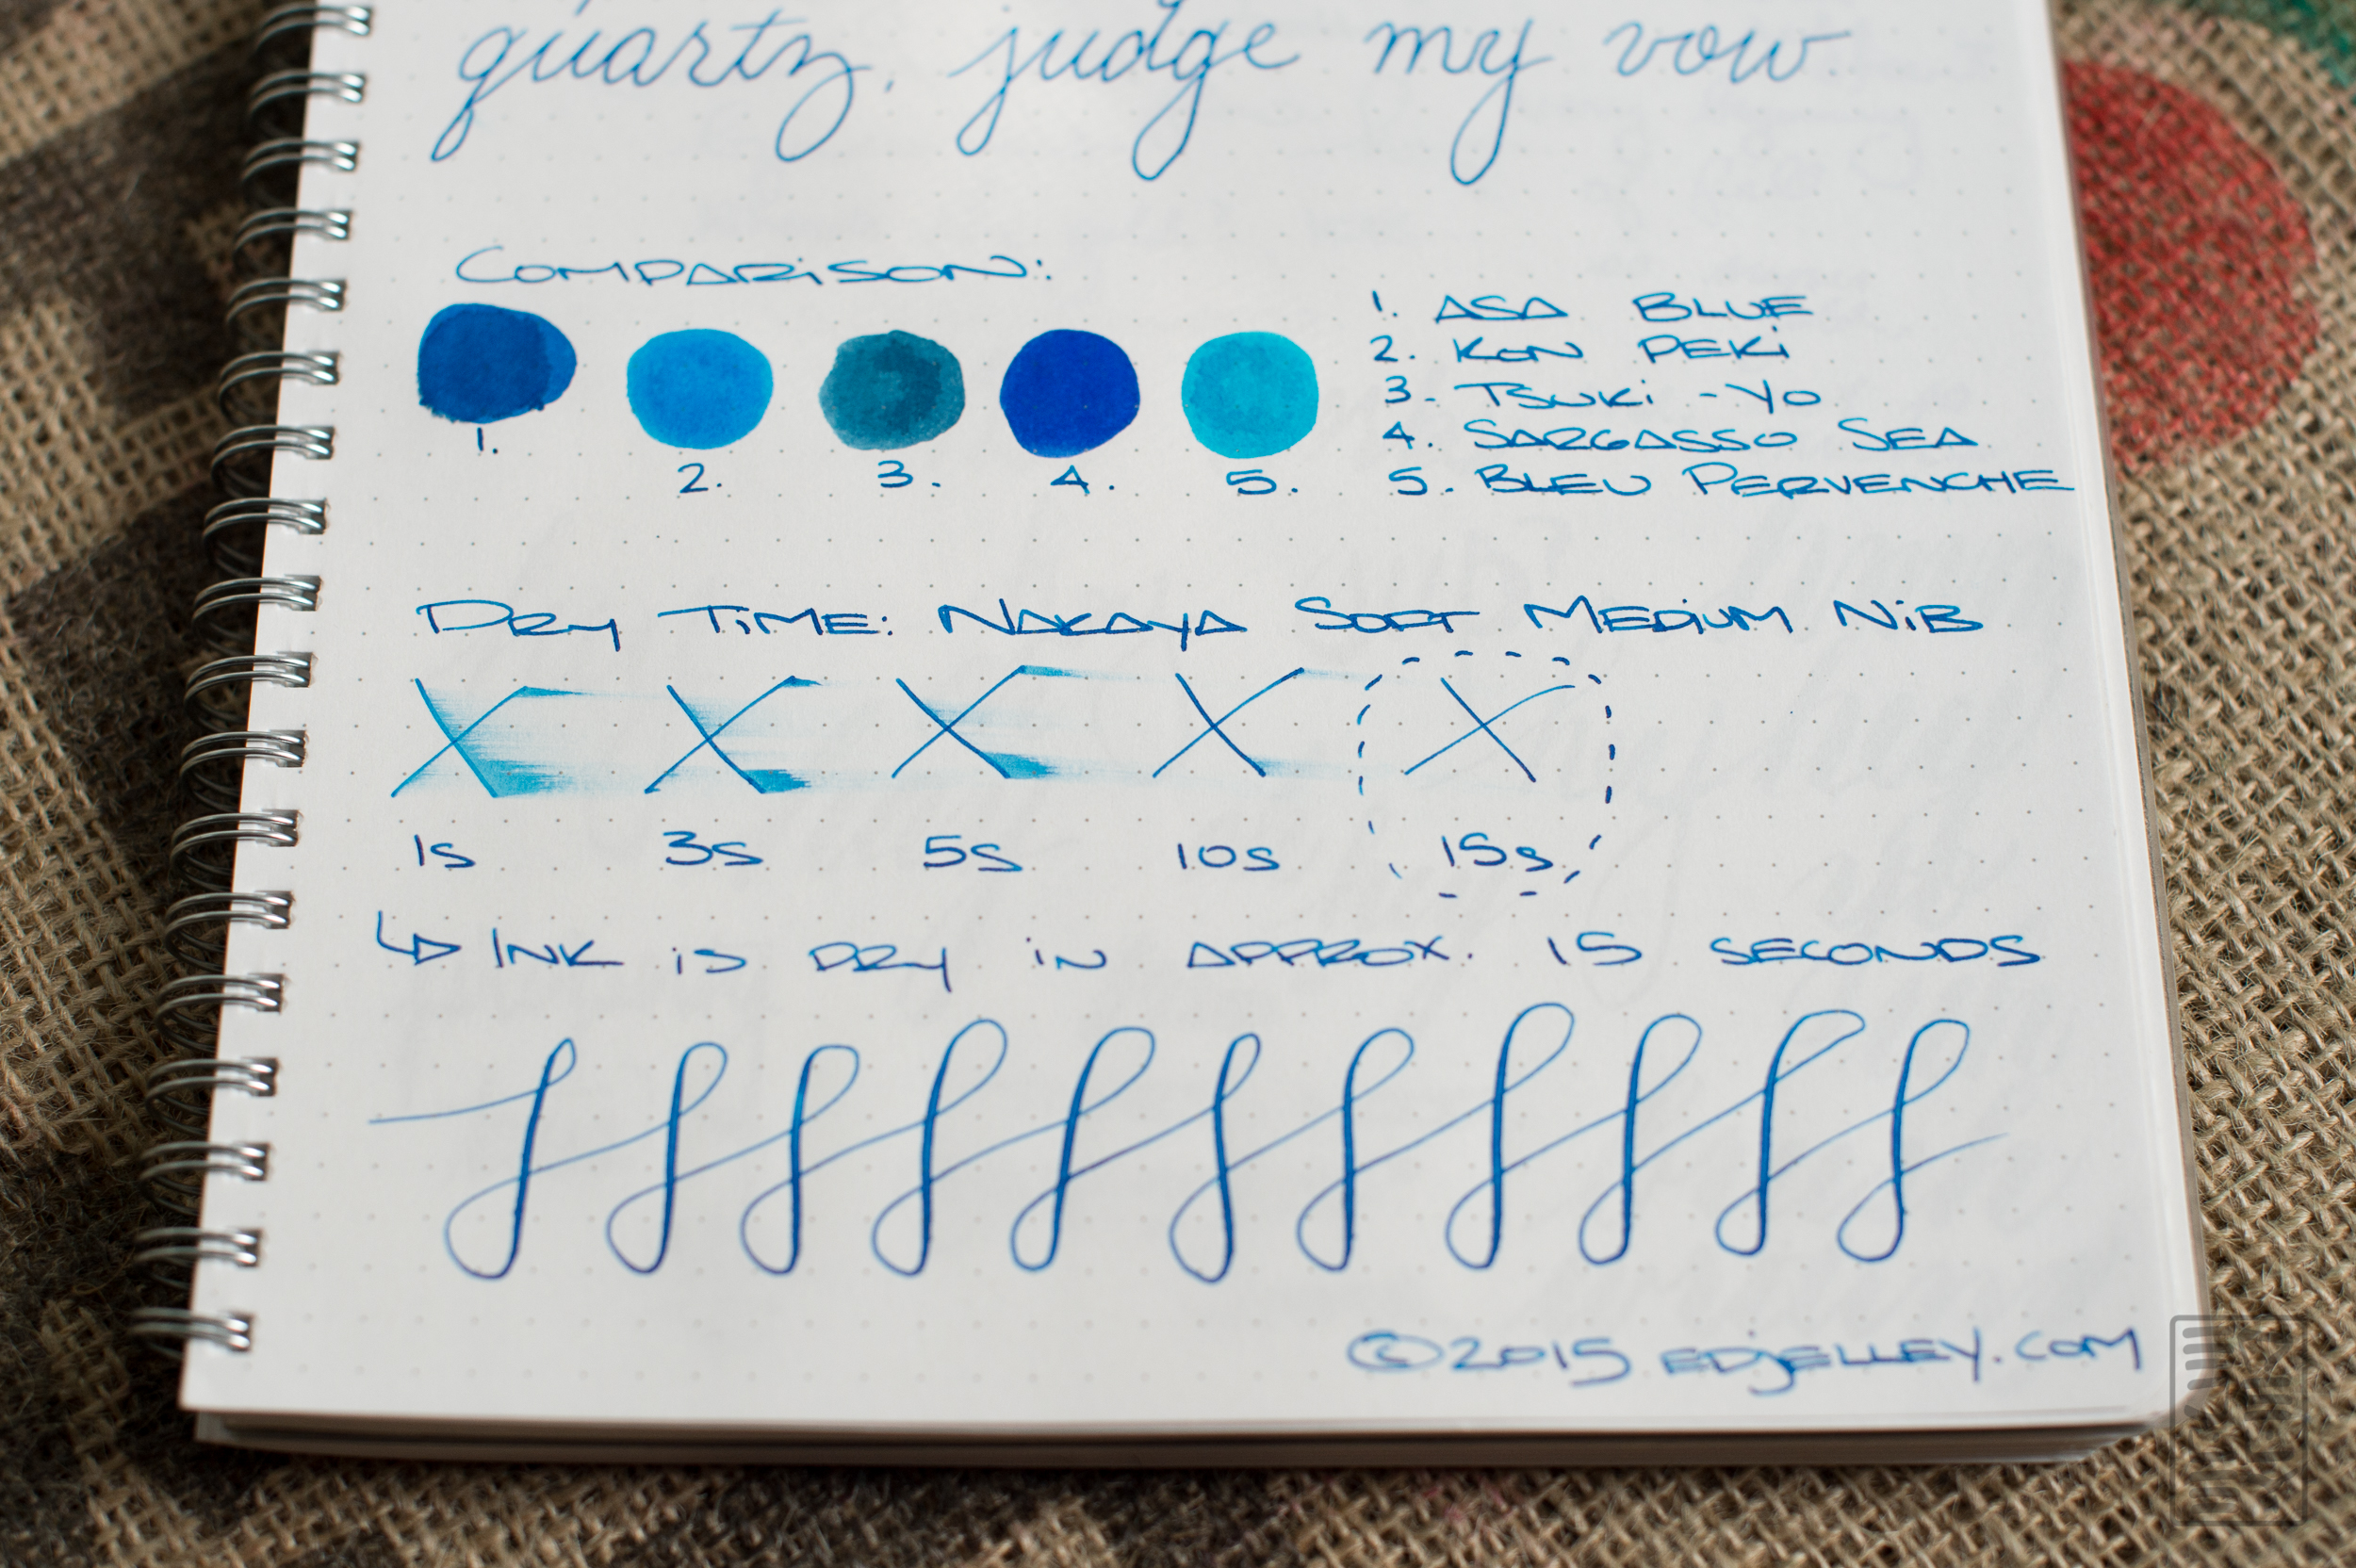 quartz, judge my vow
COMPARISON:
1.
2.
3.
4.
5.
1. ASA BLUE
2. KON PEKI
3. TSUKI-YO
4. SARGASSO SEA
5. BLEU PERVENCHE
DRY TIME: NAKAYA SOFT MEDIUM NIB
1s 3s 5s 10s 15s
INK IS DRY IN APPROX. 15 SECONDS
©2015 EDJELLEY.COM